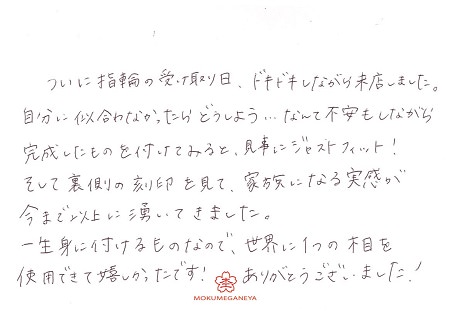 ついに指輪の受け取り日、ドキドキしながら来店しました。
自分に似合わなかったらどうしよう…なんて不安もしながら
完成したものを付けてみると、見事にジャストフィット!
そして裏側の刻印を見て、家族になる実感が
今まで以上に湧いてきました。
一生身に付けるものなので、世界に1つの木目を
使用できて嬉しかったです! ありがとうございました!
MOKUMEGANEYA